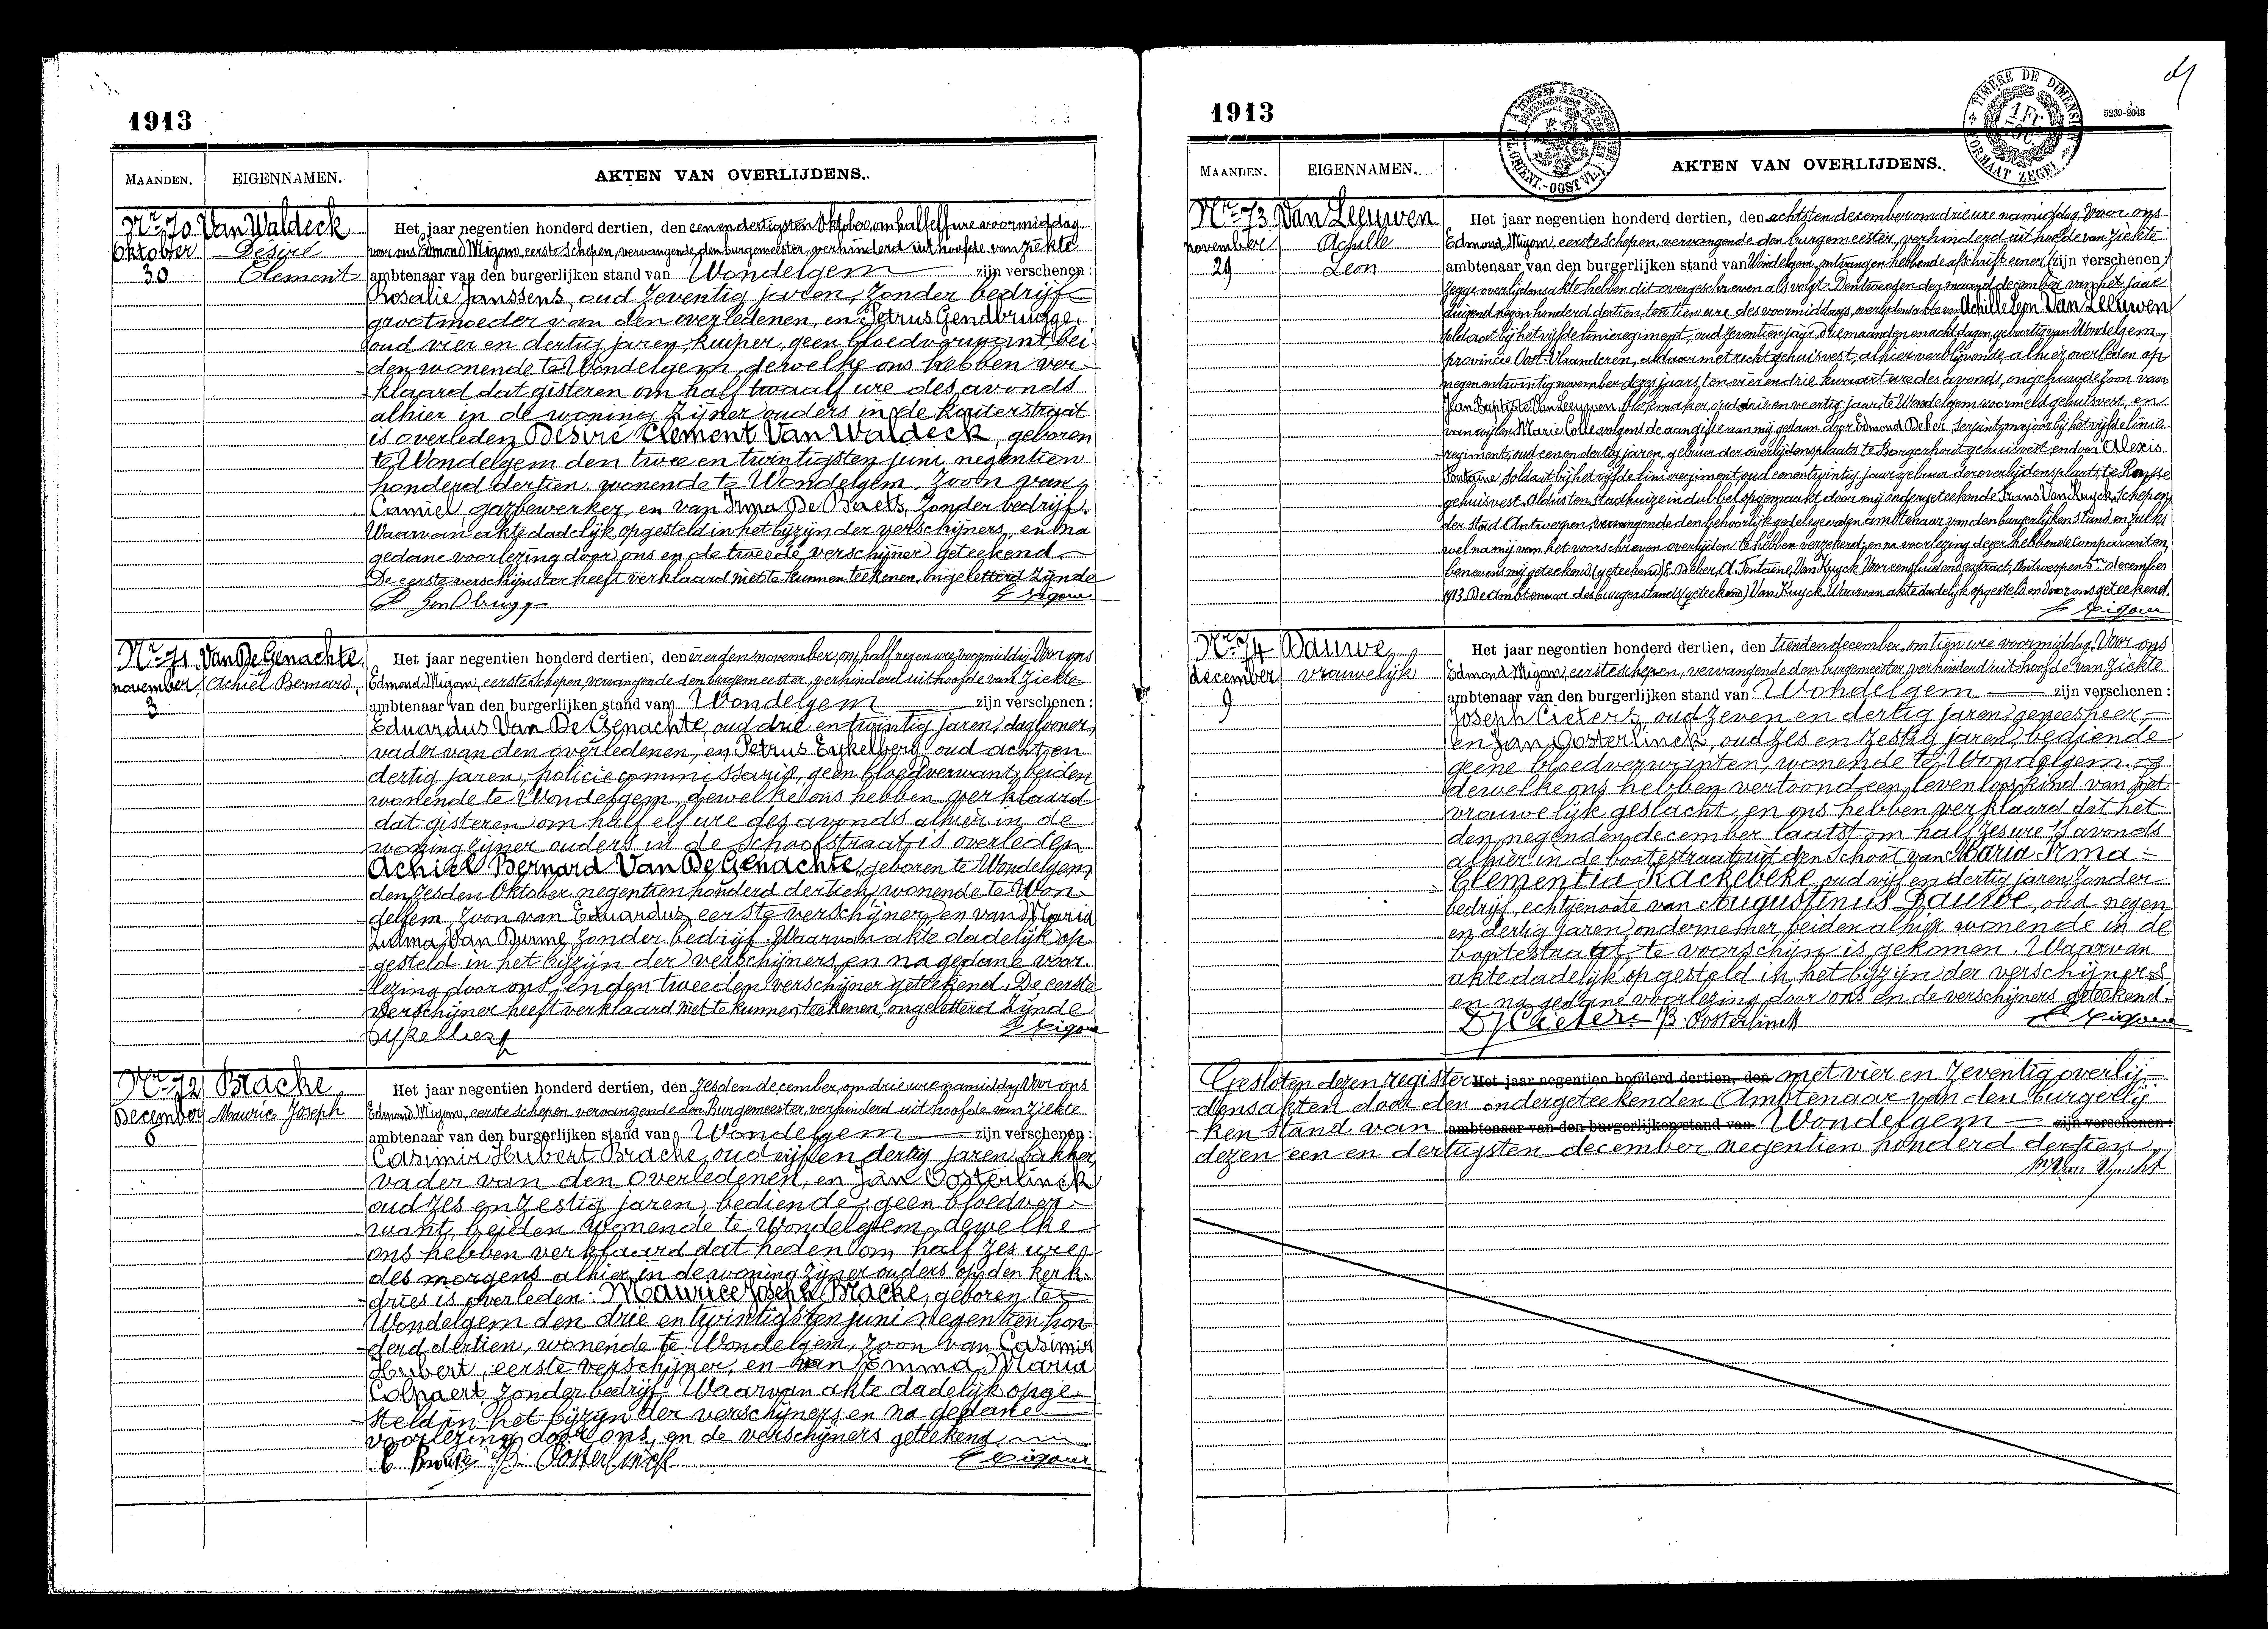 1913
MAANDEN.
EIGENNAMEN.
AKTEN VAN OVERLIJDENS.
Nr 70 Van Waldeck
Oktober Désiré
30 Clement
Het jaar negentien honderd dertien, den een en dertigsten Oktober, om half elf ure voormiddag
voor ons Edmond Migom, eerste Schepen, vervangende den burgemeester, verhinderd uit hoofde van ziekte
ambtenaar van den burgerlijken stand van Wondelgem zijn verschenen:
Rosalie Janssens, oud zeventig jaren, zonder bedrijf
grootmoeder van den overledenen, en Petrus Gendbrugge,
oud vier en dertig jaren, kuiper, geen bloedverwant, bei-
den wonende te Wondelgem, dewelke ons hebben ver-
klaard dat gisteren om half twaalf ure des avonds
alhier in de woning zijner ouders in de Kuiterstraat
is overleden Désiré Clement Van Waldeck, geboren
te Wondelgem den twee en twintigsten juni negentien
honderd dertien, wonende te Wondelgem, zoon van
Camiel, gazbewerker, en van Irma De Baets, zonder bedrijf.
Waarvan akte dadelijk opgesteld in het bijzijn der verschijners, en na
gedane voorlezing door ons en de tweede verschijner geteekend.
De eerste verschijnster heeft verklaard niet te kunnen teekenen, ongeletterd zijnde
P Gendbrugge E Migom
Nr 71 Van De Genachte
november Achiel Bernard
3
Het jaar negentien honderd dertien, den vierden november, om half negen ure, voormiddag Voor ons
Edmond Migom, eerste schepen, vervangende den burgemeester, verhinderd uit hoofde van ziekte
ambtenaar van den burgerlijken stand van Wondelgem zijn verschenen:
Eduardus Van De Genachte, oud drie en twintig jaren, daglooner,
vader van den overledenen, en Petrus Eykelberg, oud acht en
dertig jaren, policiecommissaris, geen bloedverwant, beiden
wonende te Wondelgem, dewelke ons hebben verklaard
dat gisteren om half elf ure des avonds alhier in de
woning zijner ouders in de Schoolstraat, is overleden
Achiel Bernard Van De Genachte, geboren te Wondelgem
den zesden Oktober negentien honderd dertien, wonende te Won-
delgem, zoon van Eduardus, eerste verschijner, en van Maria
Zulma Van Durme, zonder bedrijf. Waarvan akte dadelijk op-
gesteld in het bijzijn der verschijners, en na gedane voor-
lezing door ons, en den tweeden verschijner geteekend. De eerste
verschijner heeft verklaard niet te kunnen teekenen, ongeletterd zijnde
Eykelberg E Migom
Nr 72 Bracke
December Maurice Joseph
6
Het jaar negentien honderd dertien, den zesden december, om drie ure namiddag Voor ons
Edmond Migom, eerste schepen, vervangende den Burgemeester, verhinderd uit hoofde van ziekte
ambtenaar van den burgerlijken stand van Wondelgem zijn verschenen:
Casimir Hubert Bracke, oud vijf en dertig jaren, bakker,
vader van den overledenen, en Jan Oosterlinck
oud zes en zestig jaren, bediende, geen bloedver-
want, beiden wonende te Wondelgem, dewelke
ons hebben verklaard dat heden om half zes ure
des morgens alhier in de woning zijner ouders op den kerk-
dries is overleden: Maurice Joseph Bracke, geboren te
Wondelgem den drie en twintigsten juni negentien hon-
derd dertien, wonende te Wondelgem, zoon van Casimir
Hubert, eerste verschijner, en van Emma Maria
Colpaert zonder bedrijf. Waarvan akte dadelijk opge-
steld in het bijzijn der verschijners en na gedane
voorlezing door ons, en de verschijners geteekend
C Bracke B. Oosterlinck E Migom
1913
TIMBRE DE DIMENSION
FORMAAT ZEGEL
1 Fr.
5239-2043
MAANDEN.
EIGENNAMEN.
AKTEN VAN OVERLIJDENS.
Nr 73 Van Leeuwen
november Achille
29 Leon
Het jaar negentien honderd dertien, den achtsten december om drie ure namiddag, Voor ons
Edmond Migom, eerste schepen, vervangende den burgemeester, verhinderd uit hoofde van ziekte
ambtenaar van den burgerlijken stand van Wondelgem, ontvangen hebbende afschrift eener zijn verschenen:
overlijdensakte hebben dit overgeschreven als volgt: Den tweeden der maand december van het jaar
duizend negen honderd dertien, ten tien ure des voormiddags, overlijdensakte van Achille Leon Van Leeuwen
soldaat bij het vijfde linieregiment, oud zeventien jaar, drie maanden en acht dagen, geboortig van Wondelgem,
provincie Oost-Vlaanderen, aldaar met recht gehuisvest, alhier verblijvende, alhier overleden op
negen en twintig november dezes jaars, ten vier en drie kwaart ure des avonds, ongehuwde zoon van
Jean Baptiste Van Leeuwen, oud drie en veertig jaar, te Wondelgem voormeld gehuisvest, en
van wijlen Marie Colle volgens de aangifte aan mij gedaan door Edmond Deber, serjant majoor bij het vijfde linie-
regiment, oud een en dertig jaren, gebuur der overlijdensplaats te Borgerhout gehuisvest en door Alexis
Fontaine, soldaat bij het vijfde linieregiment, oud een en twintig jaar, gebuur der overlijdensplaats, te Ronsse
gehuisvest. Aldus ten Stadhuize in dubbel opgemaakt door mij ondergeteekende Frans Van Kuyck, Schepen
der stad Antwerpen, vervangende den behoorlijk gedelegeerden ambtenaar van den burgerlijken Stand, en zulks
wel na mij van het voorschreven overlijden te hebben verzekerd, en na voorlezing dezer hebben de Comparanten,
benevens mij geteekend, (geteekend) E. Deber, A. Fontaine, Van Kuyck. Voor eensluidend extract, Antwerpen 5en december
1913. De Ambtenaar des burgerstands (geteekend) Van Kuyck. Waarvan akte dadelijk opgesteld en door ons geteekend.
E Migom
Nr 74 Dauwe
december vrouwelijk
9
Het jaar negentien honderd dertien, den tienden december, om tien ure voormiddag, Voor ons
Edmond Migom, eerste schepen, vervangende den burgemeester, verhinderd uit hoofde van ziekte
ambtenaar van den burgerlijken stand van Wondelgem zijn verschenen:
Joseph Cieters, oud zeven en dertig jaren, geneesheer,
en Jan Oosterlinck, oud zes en zestig jaren, bediende
geene bloedverwanten, wonende te Wondelgem,
dewelke ons hebben vertoond een levenloos kind van het
vrouwelijk geslacht, en ons hebben verklaard dat het
den negenden december laatst om half zes ure 's avonds
alhier in de bootestraat uit den schoot van Maria Irma
Clementia Rackebeke, oud vijf en dertig jaren, zonder
bedrijf, echtgenoote van Augustinus Dauwe, oud negen
en dertig jaren, ondernemer, beiden alhier wonende in de
bootestraat, te voorschijn is gekomen. Waarvan
akte dadelijk opgesteld in het bijzijn der verschijners
en na gedane voorlezing door ons en de verschijners geteekend.
Dr J Cieters B. Oosterlinck E Migom
Gesloten dezen register Het jaar negentien honderd dertien, den met vier en zeventig overlij-
densakten door den ondergeteekenden Ambtenaar van den burgerlij-
ken stand van ambtenaar van den burgerlijken stand van Wondelgem zijn verschenen:
dezen een en dertigsten december negentien honderd dertien.